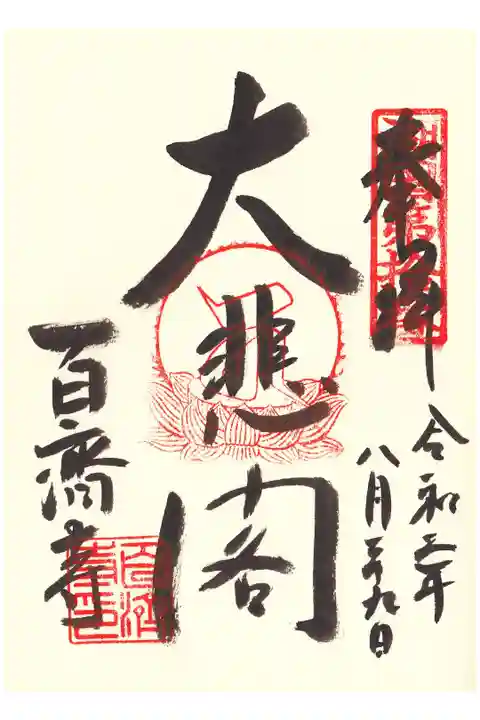 奉拝
令和三年
八月二十九日
大悲閣
百濟寺